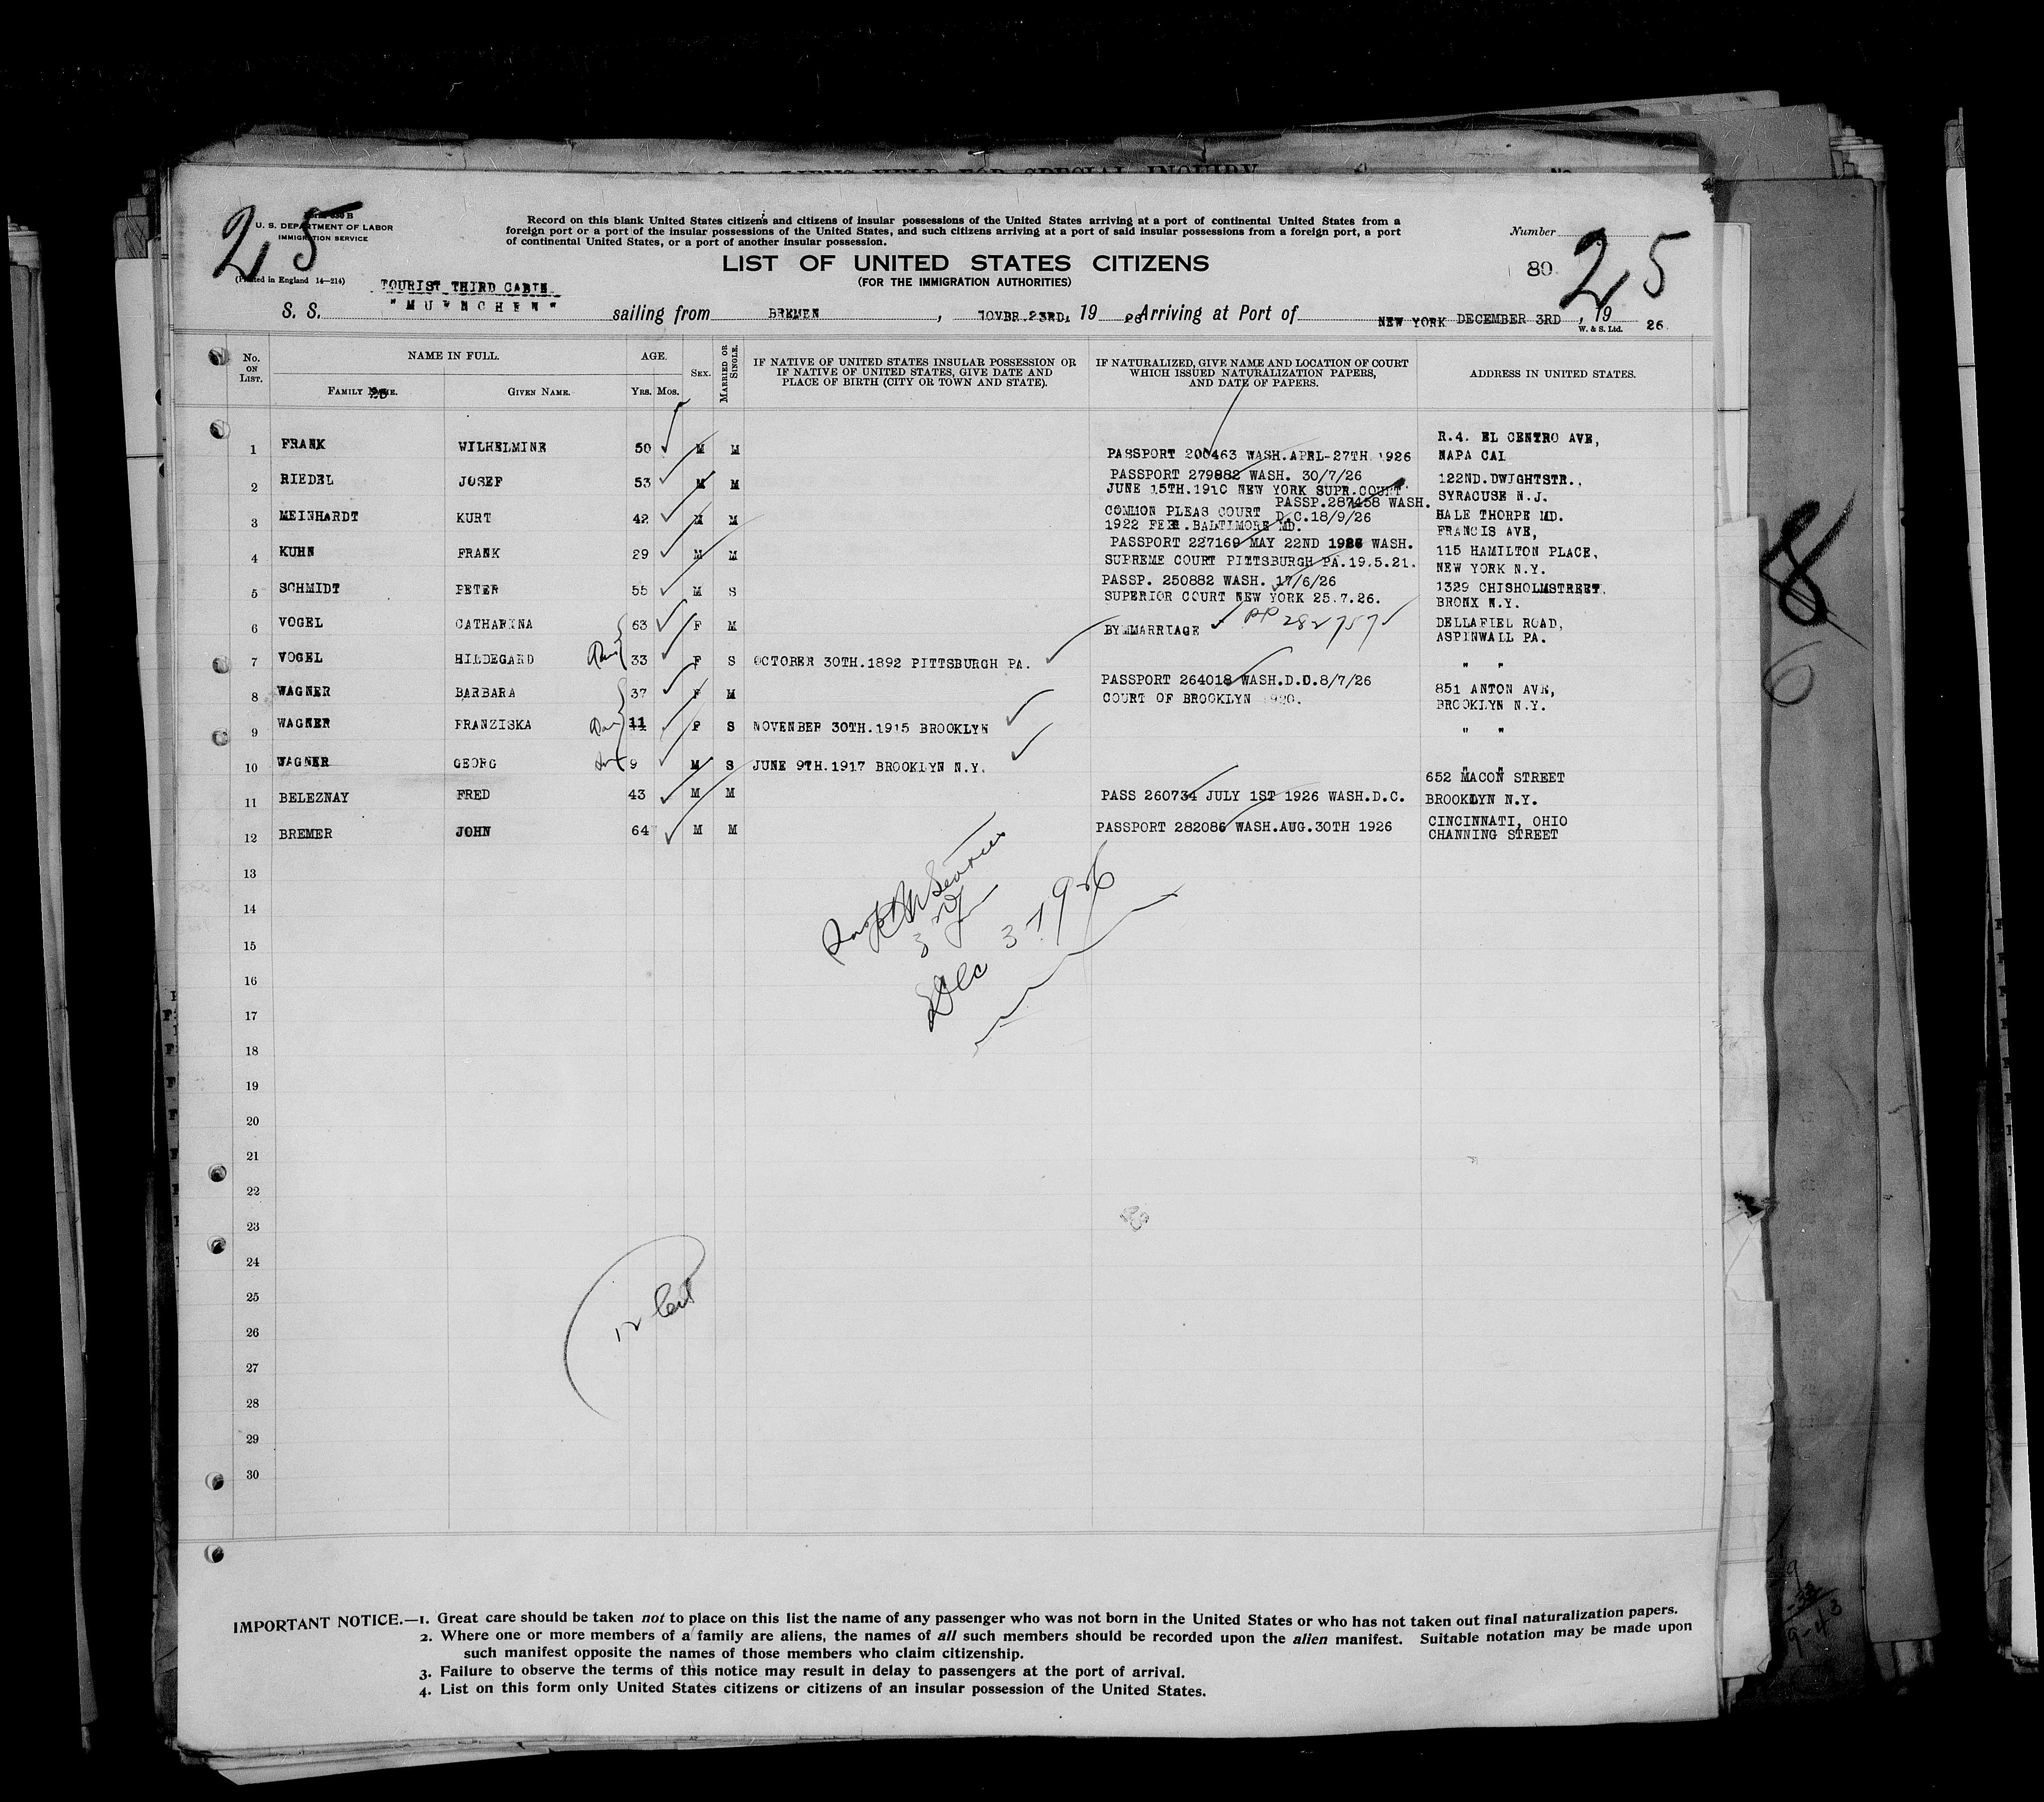 OF ALIENS HELD FOR SPECIAL INQUIRY
25
U. S. DEPARTMENT OF LABOR
IMMIGRATION SERVICE
(Printed in England 14—214)
Record on this blank United States citizens and citizens of insular possessions of the United States arriving at a port of continental United States from a
foreign port or a port of the insular possessions of the United States, and such citizens arriving at a port of said insular possessions from a foreign port, a port
of continental United States, or a port of another insular possession.
Number
25
80
LIST OF UNITED STATES CITIZENS
(FOR THE IMMIGRATION AUTHORITIES)
TOURIST THIRD CABIN
S. S. "MUENCHEN" sailing from BREMEN, NOVBR.23RD, 19 26 Arriving at Port of NEW YORK DECEMBER 3RD, 19 26.
W. & S. Ltd.
No. ON LIST. NAME IN FULL. AGE. SEX. MARRIED OR SINGLE. IF NATIVE OF UNITED STATES INSULAR POSSESSION OR IF NATIVE OF UNITED STATES, GIVE DATE AND PLACE OF BIRTH (CITY OR TOWN AND STATE). IF NATURALIZED, GIVE NAME AND LOCATION OF COURT WHICH ISSUED NATURALIZATION PAPERS, AND DATE OF PAPERS. ADDRESS IN UNITED STATES.
FAMILY NAME. GIVEN NAME. YRS. MOS.
R.4. EL CENTRO AVE,
1 FRANK WILHELMINE 50 M M PASSPORT 200463 WASH.APRL-27TH 1926 NAPA CAL
PASSPORT 279882 WASH. 30/7/26 122ND.DWIGHTSTR.,
2 RIEDEL JOSEF 53 M M JUNE 15TH.1910 NEW YORK SUPR.COURT SYRACUSE N.J.
PASSP.287458 WASH.
3 MEINHARDT KURT 42 M M COMMON PLEAS COURT D.C.18/9/26 HALE THORPE MD.
1922 FEB.BALTIMORE MD. FRANCIS AVE,
PASSPORT 227169 MAY 22ND 1926 WASH.
4 KUHN FRANK 29 M M SUPREME COURT PITTSBURGH PA.19.5.21. 115 HAMILTON PLACE,
NEW YORK N.Y.
PASSP. 250882 WASH. 17/6/26
5 SCHMIDT PETER 55 M S SUPERIOR COURT NEW YORK 25.7.26. 1329 CHISHOLMSTREET.
BRONX N.Y.
6 VOGEL CATHARINA 63 F M BY MARRIAGE PP 282757 DELLAFIEL ROAD,
ASPINWALL PA.
7 VOGEL HILDEGARD 33 F S OCTOBER 30TH.1892 PITTSBURGH PA. " "
PASSPORT 264018 WASH.D.D.8/7/26
8 WAGNER BARBARA 37 F M COURT OF BROOKLYN 1920. 851 ANTON AVE,
BROOKLYN N.Y.
9 WAGNER FRANZISKA 11 F S NOVENBER 30TH.1915 BROOKLYN " "
10 WAGNER GEORG 9 M S JUNE 9TH.1917 BROOKLYN N.Y. " "
652 MACON STREET
11 BELEZNAY FRED 43 M M PASS 260734 JULY 1ST 1926 WASH.D.C. BROOKLYN N.Y.
12 BREMER JOHN 64 M M PASSPORT 282086 WASH.AUG.30TH 1926 CINCINNATI, OHIO
CHANNING STREET
13
14
15
Dec 3-1926
16
17
18
19
20
21
22
23
24
25
26
27
28
29
30
IMPORTANT NOTICE.—1. Great care should be taken not to place on this list the name of any passenger who was not born in the United States or who has not taken out final naturalization papers.
2. Where one or more members of a family are aliens, the names of all such members should be recorded upon the alien manifest. Suitable notation may be made upon
such manifest opposite the names of those members who claim citizenship.
3. Failure to observe the terms of this notice may result in delay to passengers at the port of arrival.
4. List on this form only United States citizens or citizens of an insular possession of the United States.
8
6